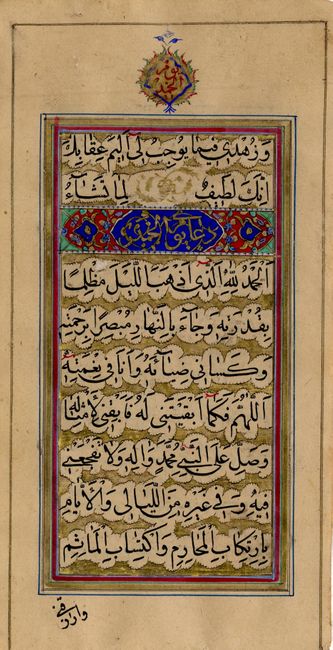 وَزَهِّدْنِي فِيمَا يُوجِبُ لِي اَلِيمَ عِقَابِكَ
اِنَّكَ لَطِيفٌ لِمَا تَشَآءُ
دعاء يوم الخميس
اَلْحَمْدُ لِلّٰهِ الَّذِي اَذْهَبَ اللَّيْلَ مُظْلِمًا
بِقُدْرَتِهِ وَجَآءَ بِالنَّهَارِ مُبْصِرًا بِرَحْمَتِهِ
وَكَسَانِي ضِيَآءَهُ وَاَنَا فِي نِعْمَتِهِ
اَللّٰهُمَّ فَكَمَا اَبْقَيْتَنِي لَهُ فَاَبْقِنِي لِاَمْثَالِهِ
وَصَلِّ عَلَى النَّبِيِّ مُحَمَّدٍ وَاٰلِهِ وَلَا تَفْجَعْنِي
فِيهِ وَفِي غَيْرِهِ مِنَ اللَّيَالِي وَالْاَيَّامِ
بِارْتِكَابِ الْمَحَارِمِ وَاكْتِسَابِ الْمَاٰثِمِ
وارزقني